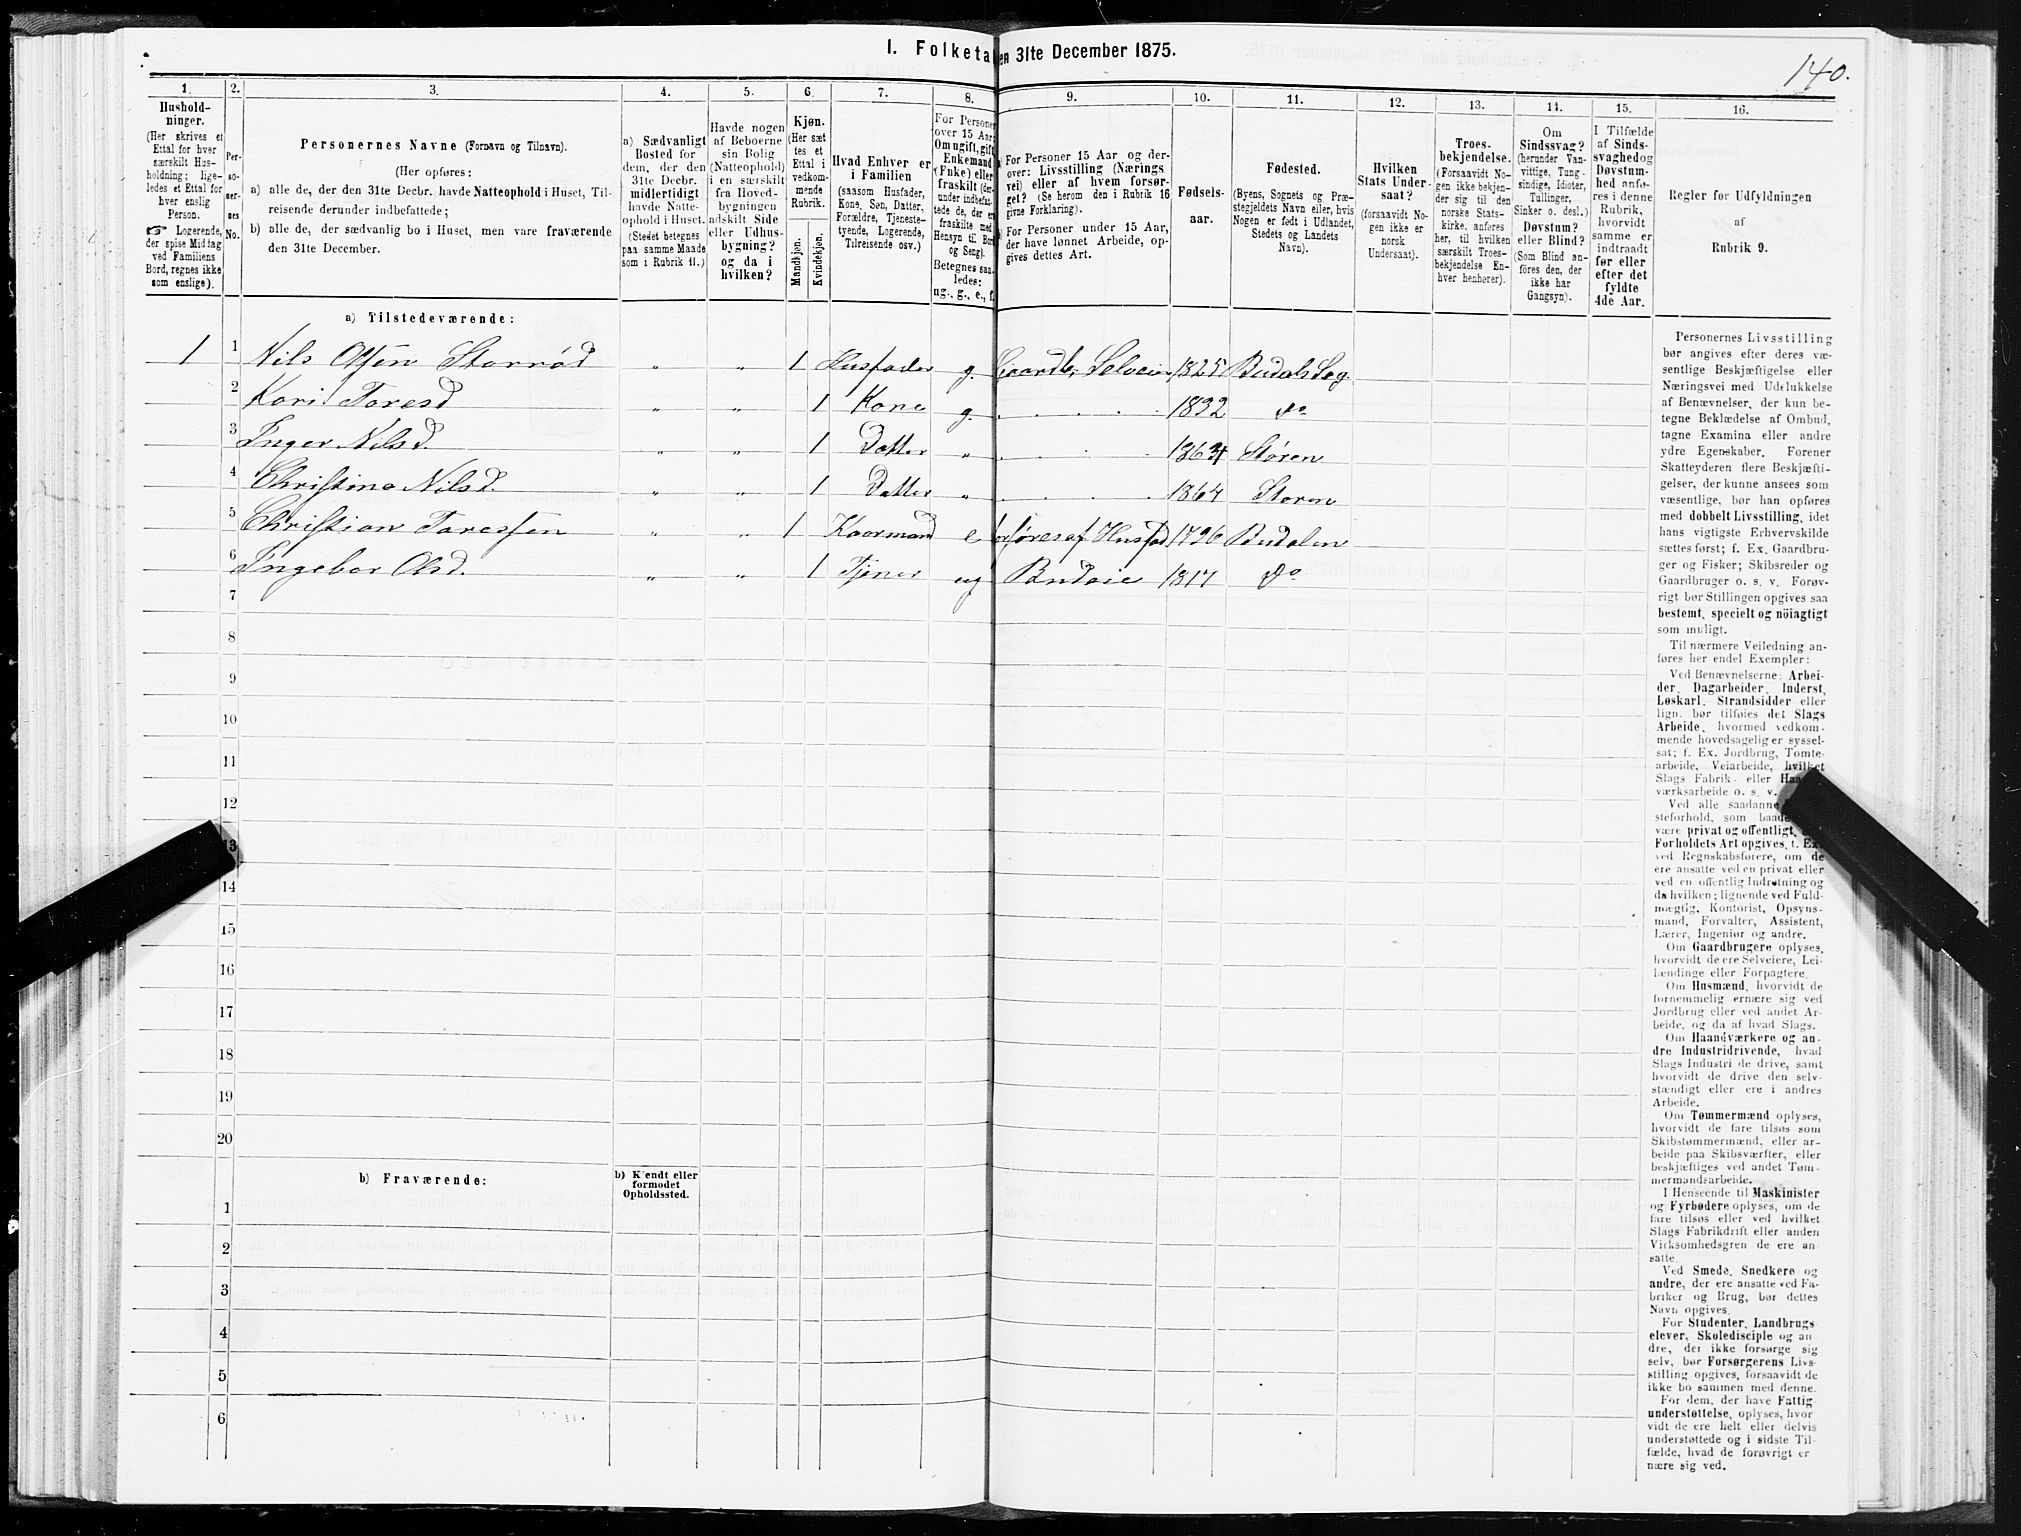 I. Folketa en 31te December 1875.
140.
1. 2. 3. 4. 5. 6. 7. 8. 9. 10. 11. 12. 13. 14. 15. 16.
Hushold-
ninger.
(Her skrives et
Ettal for hver
særskilt Hus-
holdning; lige-
ledes et Ettal for
hver enslig
Person.
☞ Logerende,
der spise Middag
ved Familiens
Bord, regnes ikke
som enslige).
Per-
so-
ner-
nes
No.
Personernes Navne (Fornavn og Tilnavn).
(Her opføres:
a) alle de, der den 31te Decbr. havde Natteophold i Huset, Til-
reisende derunder indbefattede;
b) alle de, der sædvanlig bo i Huset, men vare fraværende
den 31te December.
a) Sædvanligt
Bosted for
dem, der den
31te Decbr.
midlertidigt
havde Natte-
ophold i Huset.
(Stedet betegnes
paa samme Maade
som i Rubrik 11.)
Havde nogen
af Beboerne
sin Bolig
(Natteophold)
i en særskilt
fra Hoved-
bygningen
adskilt Side
eller Udhus-
bygning?
og da i
hvilken?
Kjøn.
(Her sæt
tes et
Ettal i
vedkom-
mende
Rubrik.
Mandkjøn.
Kvindekjøn.
Hvad Enhver er
i Familien
(saasom Husfader,
Kone, Søn, Datter,
Forældre, Tjeneste-
tyende, Logerende,
Tilreisende osv.)
For Personer
over 15 Aar:
Om ugift, gift
Enkemand
(Enke) eller
fraskilt (der-
under indbefat-
tede de, der er
fraskilte med
Hensyn til Bord
og Seng).
Betegnes saa-
ledes:
ug., g., e., f.
For Personer 15 Aar og der-
over: Livsstilling (Nærings
vei) eller af hvem forsør-
get? (Se herom den i Rubrik 16
givne Forklaring).
For Personer under 15 Aar,
der have lønnet Arbeide, op-
gives dettes Art.
Fødsels-
aar.
Fødested.
(Byens, Sognets og Præ-
stegjeldets Navn eller, hvis
Nogen er født i Udlandet,
Stedets og Landets
Navn).
Hvilken
Stats Under-
saat?
(forsaavidt No-
gen ikke er
norsk
Undersaat).
Troes-
bekjendelse.
(Forsaavidt No-
gen ikke bekjen-
der sig til den
norske Stats-
kirke, anføres
her, til hvilken
særskilt Troes-
bekjendelse En-
hver henhører).
Om
Sindssvag?
(herunder Van-
vittige, Tung-
sindige, Idioter,
Tullinger,
Sinker o. desl.)
Døvstum?
eller Blind?
(Som Blind an-
føres den, der
ikke har
Gangsyn).
I Tilfælde
af Sinds-
svaghed og
Døvstum-
hed anfø-
res i denne
Rubrik,
hvorvidt
samme er
indtraadt
før eller
efter det
fyldte
4de Aar.
Regler for Udfyldningen
af
Rubrik 9.
a) Tilstedeværende:
1 1 Nils Olsen Storrød " " 1 Husfader g. Gaardb. Selveier 1825 Budals Sog
2 Kari Toresd " " 1 Kone g. 1832 do
3 Inger Nilsd. " " 1 Datter " Støren
4 Christine Nilsd. " " 1 Datter " 1864 Støren
5 Christian Toressen " " 1 Kaarmand e forsøres af Husfad 1796 Budalen
6 Ingebor Olsd. " " 1 Tjener ug Budeie 1817 do
7
8
9
10
11
12
13
14
15
16
17
18
19
20
b) Fraværende:
b) Kjendt eller
formodet
Opholdssted.
1
2
3
4
5
6
Personernes Livsstilling
bør angives efter deres væ-
sentlige Beskjæftigelse eller
Næringsvei med Udelukkelse
af Benævnelser, der kun be-
tegne Beklædelse af Ombud,
tagne Examina eller andre
ydre Egenskaber. Forener
Skatteyderen flere Beskjæfti-
gelser, der kunne ansees som
væsentlige, bør han opføres
med dobbelt Livsstilling, idet
hans vigtigste Erhvervskilde
sættes først; f. Ex. Gaardbru-
ger og Fisker; Skibsreder og
Gaardbruger o. s. v. Forøv-
rigt bør Stillingen opgives saa
bestemt, specielt og nöiagtigt
som muligt.
Til nærmere Veiledning an-
føres her endel Exempler:
Ved Benævnelserne: Arbei-
der, Dagarbeider, Inderst,
Løskarl, Strandsidder eller
lign. bør tilføies det Slags
Arbeide, hvormed vedkom-
mende hovedsagelig er syssel-
sat; f. Ex. Jordbrug, Tomte-
arbeide, Veiarbeide, hvilket
Slags Fabrik- eller Haand-
værksarbeide o. s. v.
Ved alle saadanne
steforhold, som baade
være privat og offentligt,
Forholdets Art opgives, f. Ex.
ved Regnskabsførere, om de
ere ansatte ved en privat eller
ved en offentlig Indretning og
da hvilken; lignende ved Fuld-
mægtig, Kontorist, Opsyns-
mand, Forvalter, Assistent,
Lærer, Ingeniør og andre.
Om Gaardbrugere oplyses,
hvorvidt de ere Selveiere, Lei-
lændinge eller Forpagtere.
Om Husmænd, hvorvidt de
fornemmelig ernære sig ved
Jordbrug eller ved andet Ar-
beide, og da af hvad Slags.
Om Haandværkere og an-
dre Industridrivende, hvad
Slags Industri de drive, samt
hvorvidt de drive den selv-
stændigt eller ere i andres
Arbeide.
Om Tømmermænd oplyses,
hvorvidt de fare tilsøs som
Skibstømmermænd, eller ar-
beide paa Skibsværfter, eller
beskjæftiges ved andet Tøm-
mermandsarbeide.
I Henseende til Maskinister
og Fyrbødere oplyses, om de
fare tilsøs eller ved hvilket
Slags Fabrikdrift eller anden
Virksomhedsgren de ere an-
satte.
Ved Smede, Snedkere og
andre, der ere ansatte ved Fa-
briker og Brug, bør dettes
Navn opgives.
For Studenter, Landbrugs-
elever, Skoledisciple og an-
dre, der ikke forsørge sig
selv, bør Forsørgerens Livs-
stilling opgives, forsaavidt de
ikke bo sammen med denne.
For dem, der have Fattig
understøttelse, oplyses, hvor
vidt de ere helt eller delvis
understøttede og i sidste Til-
fælde, hvad de forøvrigt er
nære sig ved.